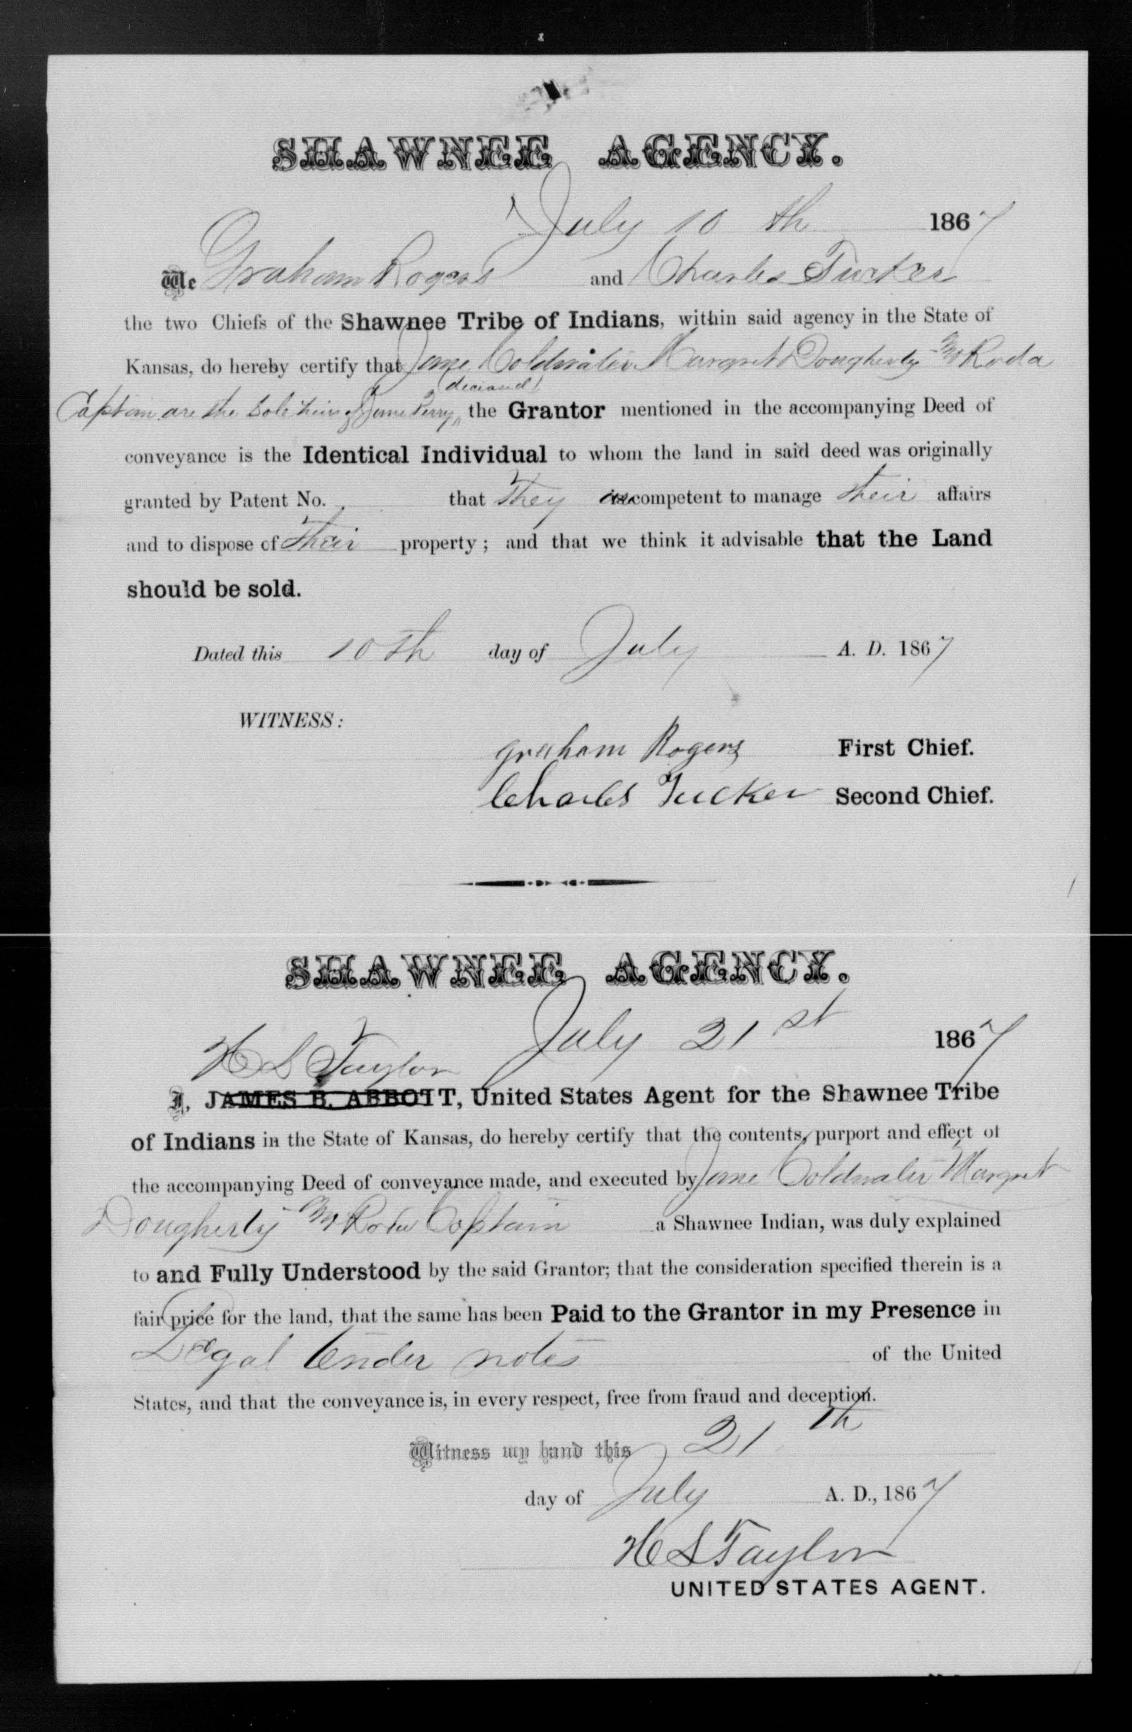 SHAWNEE AGENCY.
July 10 th 1867
We Graham Rogers and Charles Tucker
the two Chiefs of the Shawnee Tribe of Indians, within said agency in the State of
Kansas, do hereby certify that Jane Coldwater Margret Dougherty & Roda
(deceased)
Captain are the Sole heirs of Jane Perry, the Grantor mentioned in the accompanying Deed of
conveyance is the Identical Individual to whom the land in said deed was originally
granted by Patent No. that they is competent to manage their affairs
and to dispose of their property; and that we think it advisable that the Land
should be sold.
Dated this 10th day of July A. D. 1867
WITNESS:
Graham Rogers First Chief.
Charles Tucker Second Chief.
SHAWNEE AGENCY.
July 21st 1867
H S Taylor
I, JAMES B. ABBOTT, United States Agent for the Shawnee Tribe
of Indians in the State of Kansas, do hereby certify that the contents, purport and effect of
the accompanying Deed of conveyance made, and executed by Jane Coldwater Margret
Dougherty & Roda Captain a Shawnee Indian, was duly explained
to and Fully Understood by the said Grantor; that the consideration specified therein is a
fair price for the land, that the same has been Paid to the Grantor in my Presence in
Legal tender notes of the United
States, and that the conveyance is, in every respect, free from fraud and deception.
Witness my hand this 21th
day of July A. D., 1867
H S Taylor
UNITED STATES AGENT.